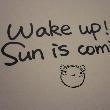 Wake up!
Sun is comi